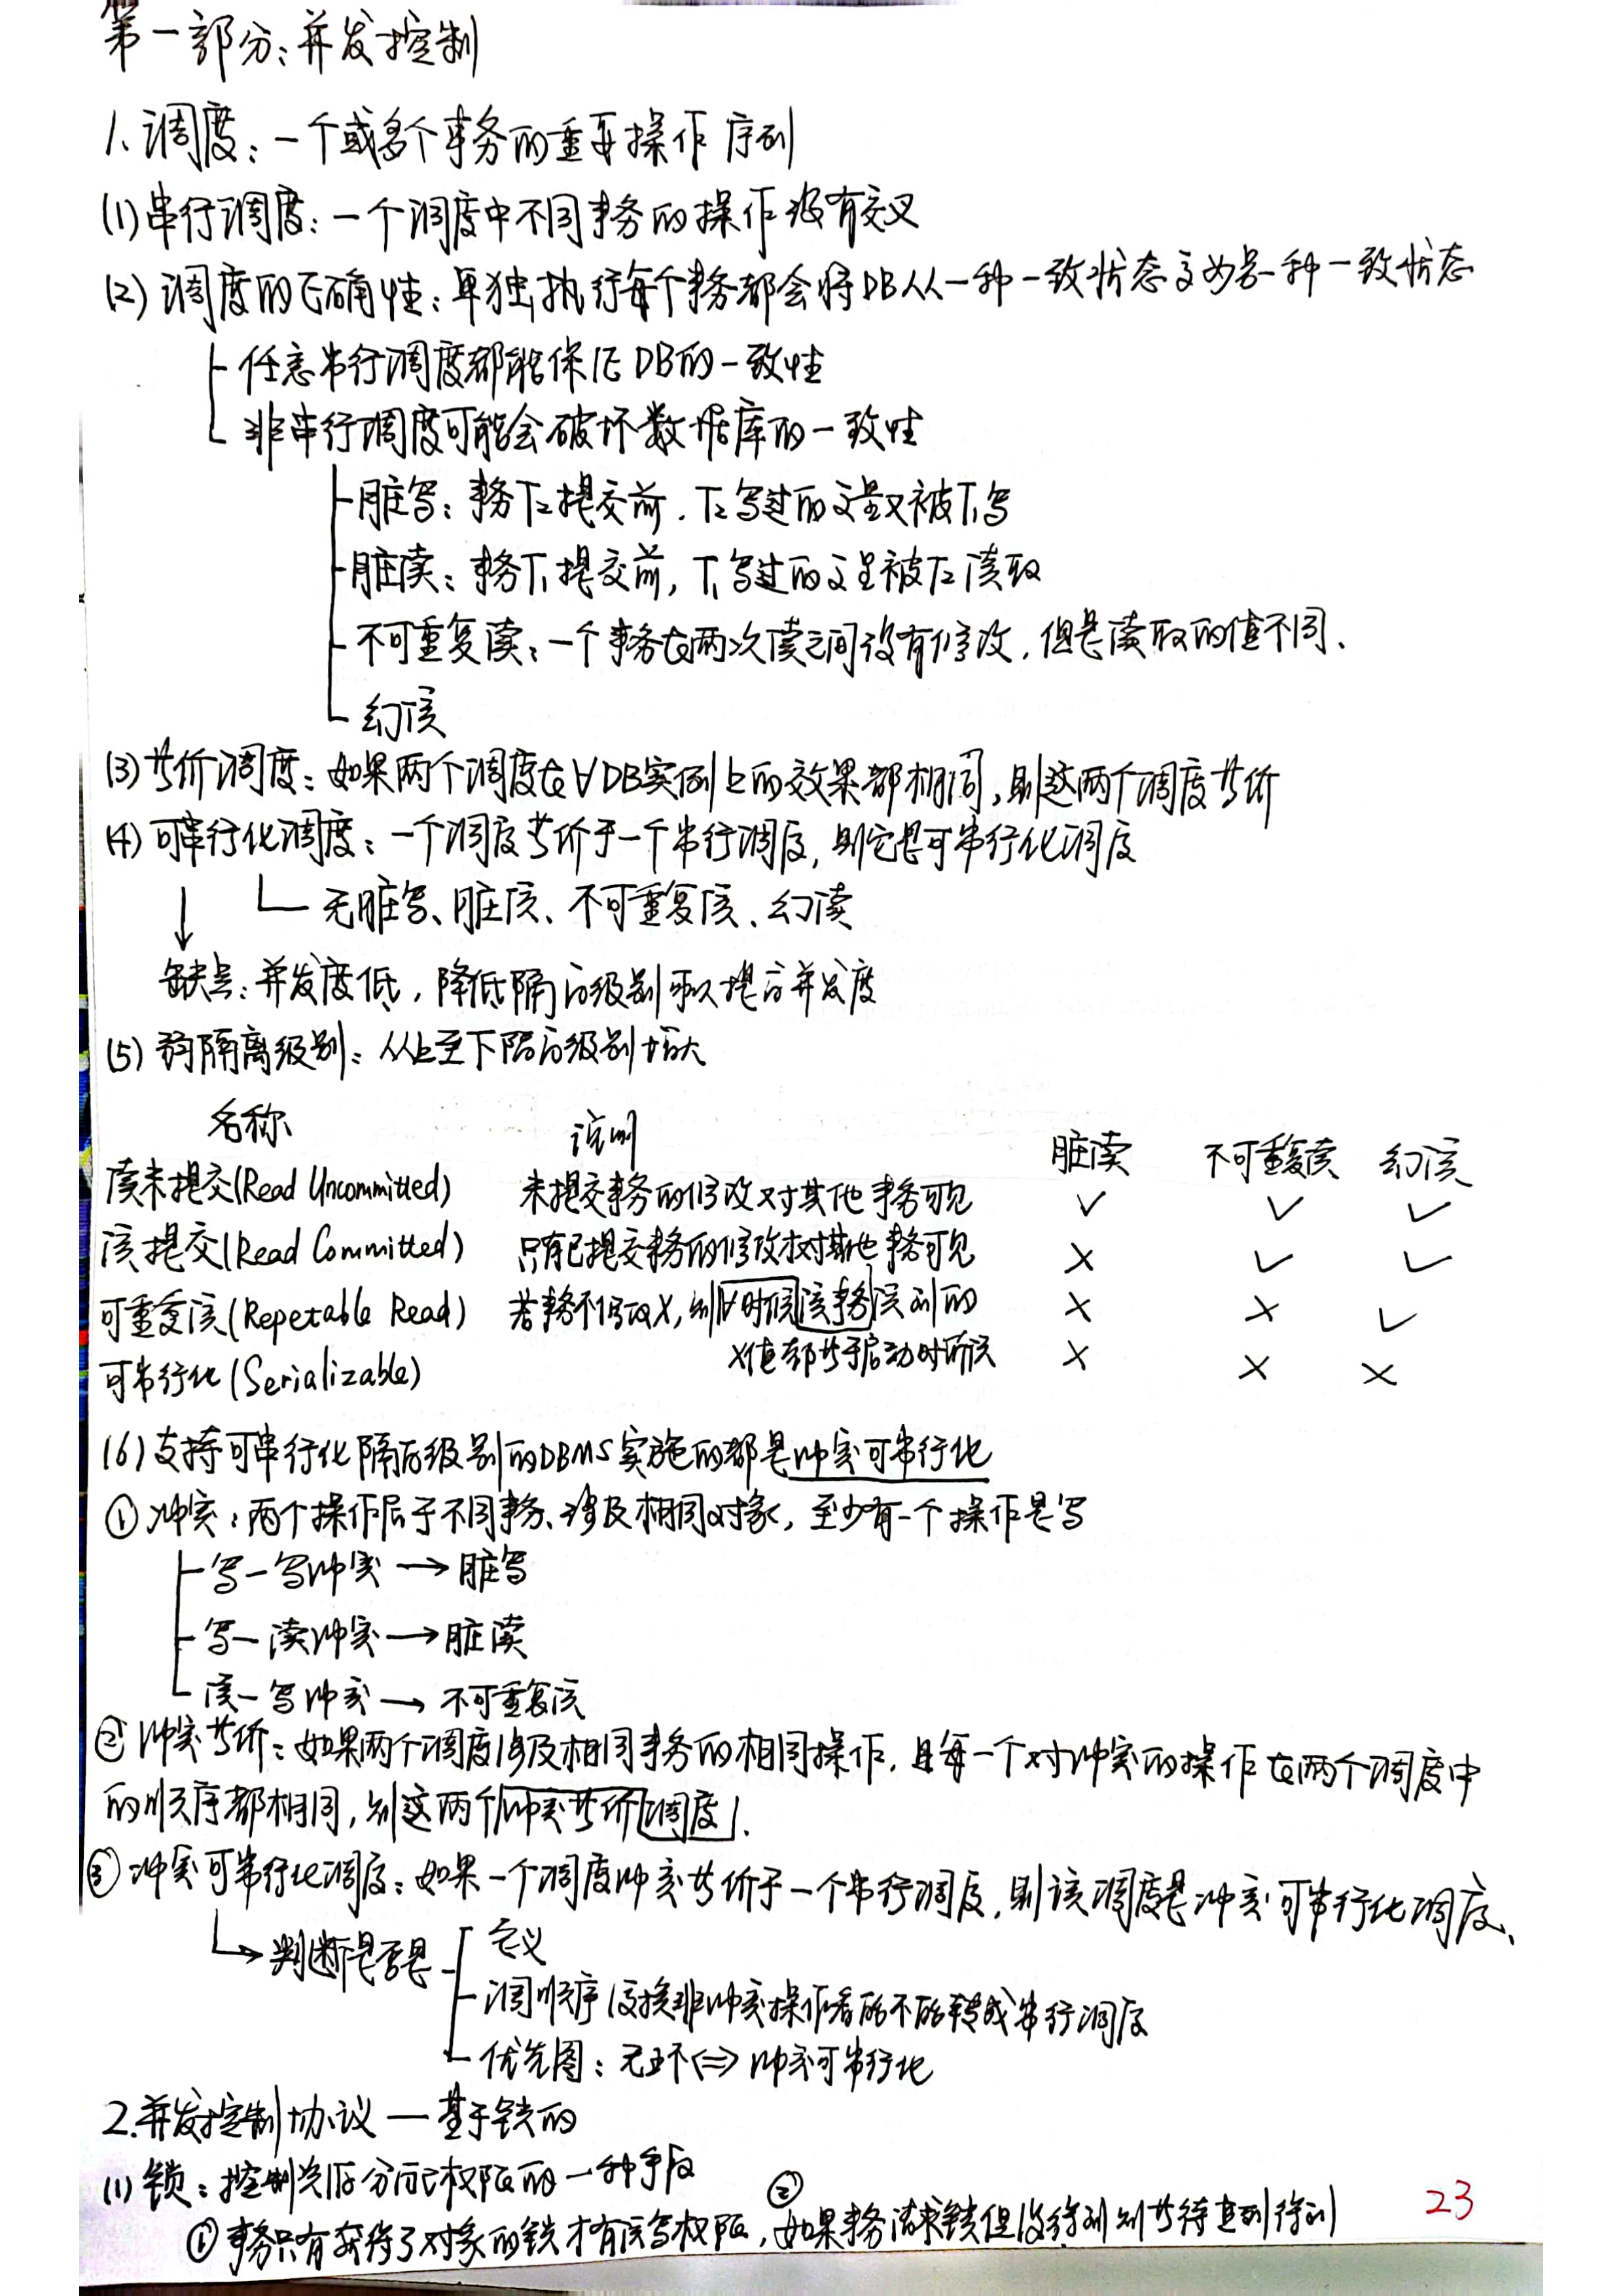 第一部分：并发控制
1、调度：一个或多个事务的重要操作序列
(1) 串行调度：一个调度中不同事务的操作没有交叉
(2) 调度的正确性：单独执行每个事务都会将DB从一种一致状态变为另一种一致状态
任意串行调度都能保证DB的一致性
非串行调度可能会破坏数据库的一致性
脏写：事务T2提交前，T2写过的变量又被T1写
脏读：事务T1提交前，T1写过的变量被T2读取
不可重复读：一个事务在两次读之间没有修改，但是读取的值不同、
幻读
(3) 等价调度：如果两个调度在∀DB实例上的效果都相同，则这两个调度等价
(4) 可串行化调度：一个调度等价于一个串行调度，则它是可串行化调度
↓ 无脏写、脏读、不可重复读、幻读
缺点：并发度低，降低隔离级别可以提高并发度
(5) 弱隔离级别：从上至下隔离级别增大
名称 说明 脏读 不可重复读 幻读
读未提交(Read Uncommitted) 未提交事务的修改对其他事务可见 ✓ ✓ ✓
读提交(Read Committed) 只有已提交事务的修改才对其他事务可见 × ✓ ✓
可重复读(Repetable Read) 若事务不修改X，则∀时间该事务读到的 × × ✓
X值都等于启动时所读
可串行化(Serializable) × × ×
(6) 支持可串行化隔离级别的DBMS实施的都是冲突可串行化
① 冲突：两个操作属于不同事务、涉及相同对象，至少有一个操作是写
写—写冲突 → 脏写
写—读冲突 → 脏读
读—写冲突 → 不可重复读
② 冲突等价：如果两个调度涉及相同事务的相同操作，且每一个对冲突的操作在两个调度中
的顺序都相同，则这两个冲突等价调度.
③ 冲突可串行化调度：如果一个调度冲突等价于一个串行调度，则该调度是冲突可串行化调度、
↳ 判断是否是 定义
调顺序 交换非冲突操作看能不能转成串行调度
优先图：无环⇔冲突可串行化
2.并发控制协议—基于锁的
(1) 锁：控制并发分配权限的一种手段
① 事务只有获得了对象的锁才有读写权限，② 如果事务请求锁但没得到则等待直到得到
23